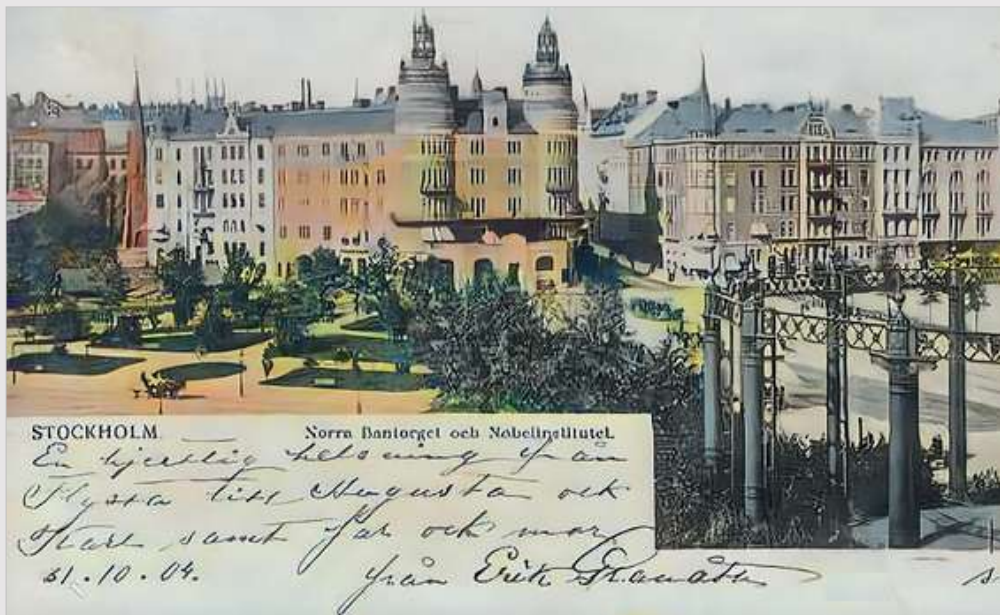 STOCKHOLM.
Norra Bantorget och Nobelinstitutet.
En hjertlig helsning från
Flysta till Augusta och
Karl samt far och mor
31.10.04. från Erik